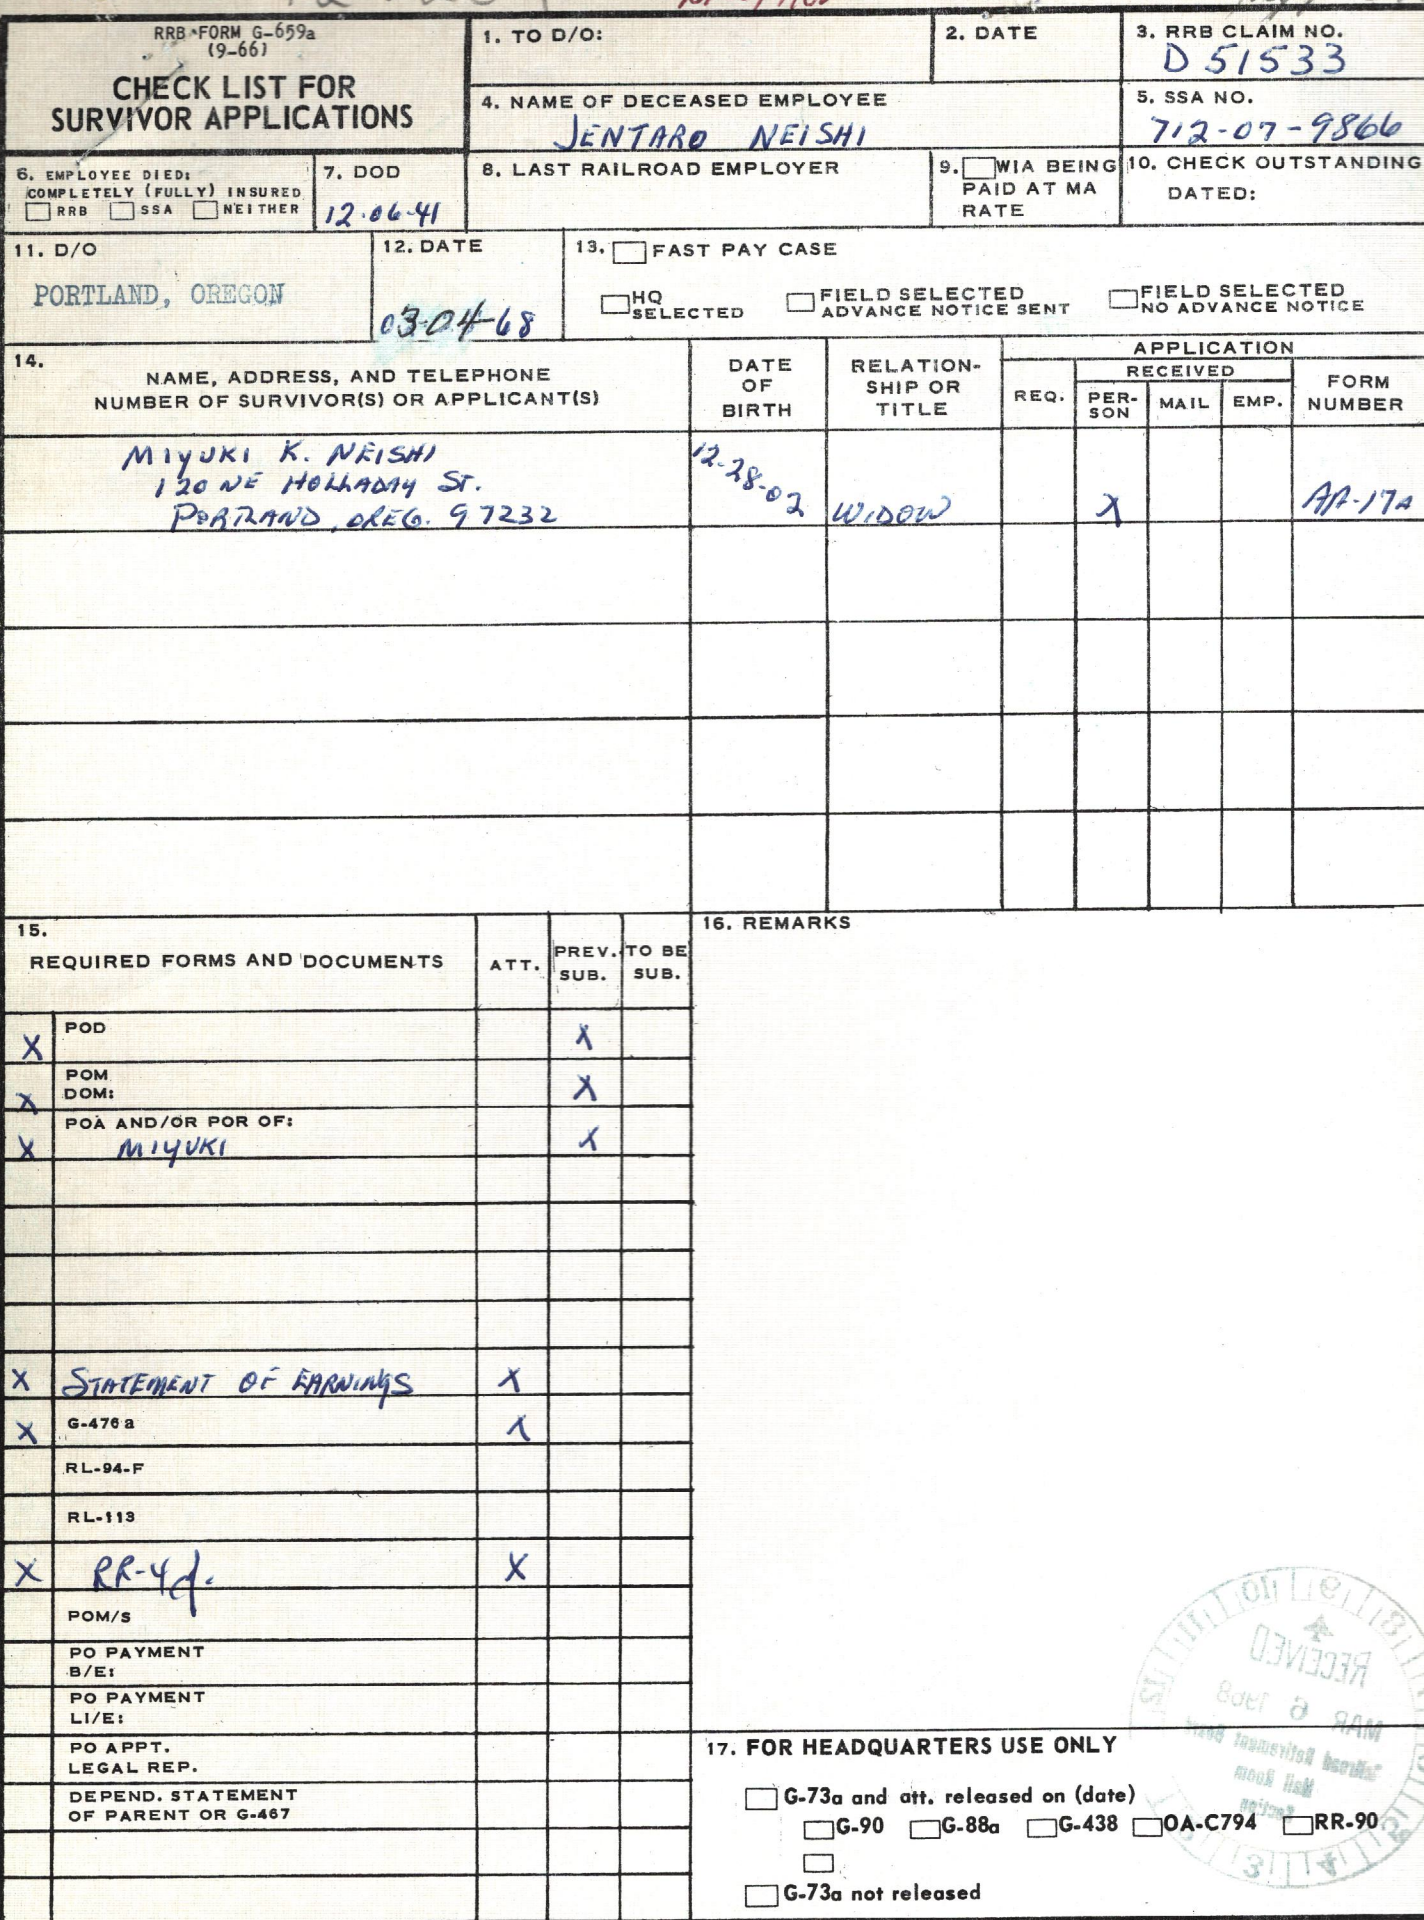 RRB FORM G-659a
(9-66)
CHECK LIST FOR
SURVIVOR APPLICATIONS
1. TO D/O:
2. DATE
3. RRB CLAIM NO.
D 51533
4. NAME OF DECEASED EMPLOYEE
JENTARO NEISHI
5. SSA NO.
712-07-9866
6. EMPLOYEE DIED:
COMPLETELY (FULLY) INSURED
RRB SSA NEITHER
7. DOD
12-06-41
8. LAST RAILROAD EMPLOYER
9. WIA BEING
PAID AT MA
RATE
10. CHECK OUTSTANDING
DATED:
11. D/O
PORTLAND, OREGON
12. DATE
03-04-68
13. FAST PAY CASE
HQ
SELECTED
FIELD SELECTED
ADVANCE NOTICE SENT
FIELD SELECTED
NO ADVANCE NOTICE
14.
NAME, ADDRESS, AND TELEPHONE
NUMBER OF SURVIVOR(S) OR APPLICANT(S)
DATE
OF
BIRTH
RELATION-
SHIP OR
TITLE
APPLICATION
REQ.
RECEIVED
PER-
SON
MAIL
EMP.
FORM
NUMBER
MIYUKI K. NEISHI
120 NE HOLLADAY ST.
PORTLAND, OREG. 97232
12-28-02
WIDOW
X
AA-17a
15.
REQUIRED FORMS AND DOCUMENTS
ATT.
PREV.
SUB.
TO BE
SUB.
16. REMARKS
X POD X
X POM
DOM: X
POA AND/OR POR OF:
X MIYUKI X
X STATEMENT OF EARNINGS X
X G-476a X
RL-94-F
RL-113
X RR-4d. X
POM/S
PO PAYMENT
B/E:
PO PAYMENT
LI/E:
PO APPT.
LEGAL REP.
DEPEND. STATEMENT
OF PARENT OR G-467
RECEIVED
MAR 6 1968
Railroad Retirement Board
Mail Room
Section
17. FOR HEADQUARTERS USE ONLY
G-73a and att. released on (date)
G-90 G-88a G-438 OA-C794 RR-90
G-73a not released